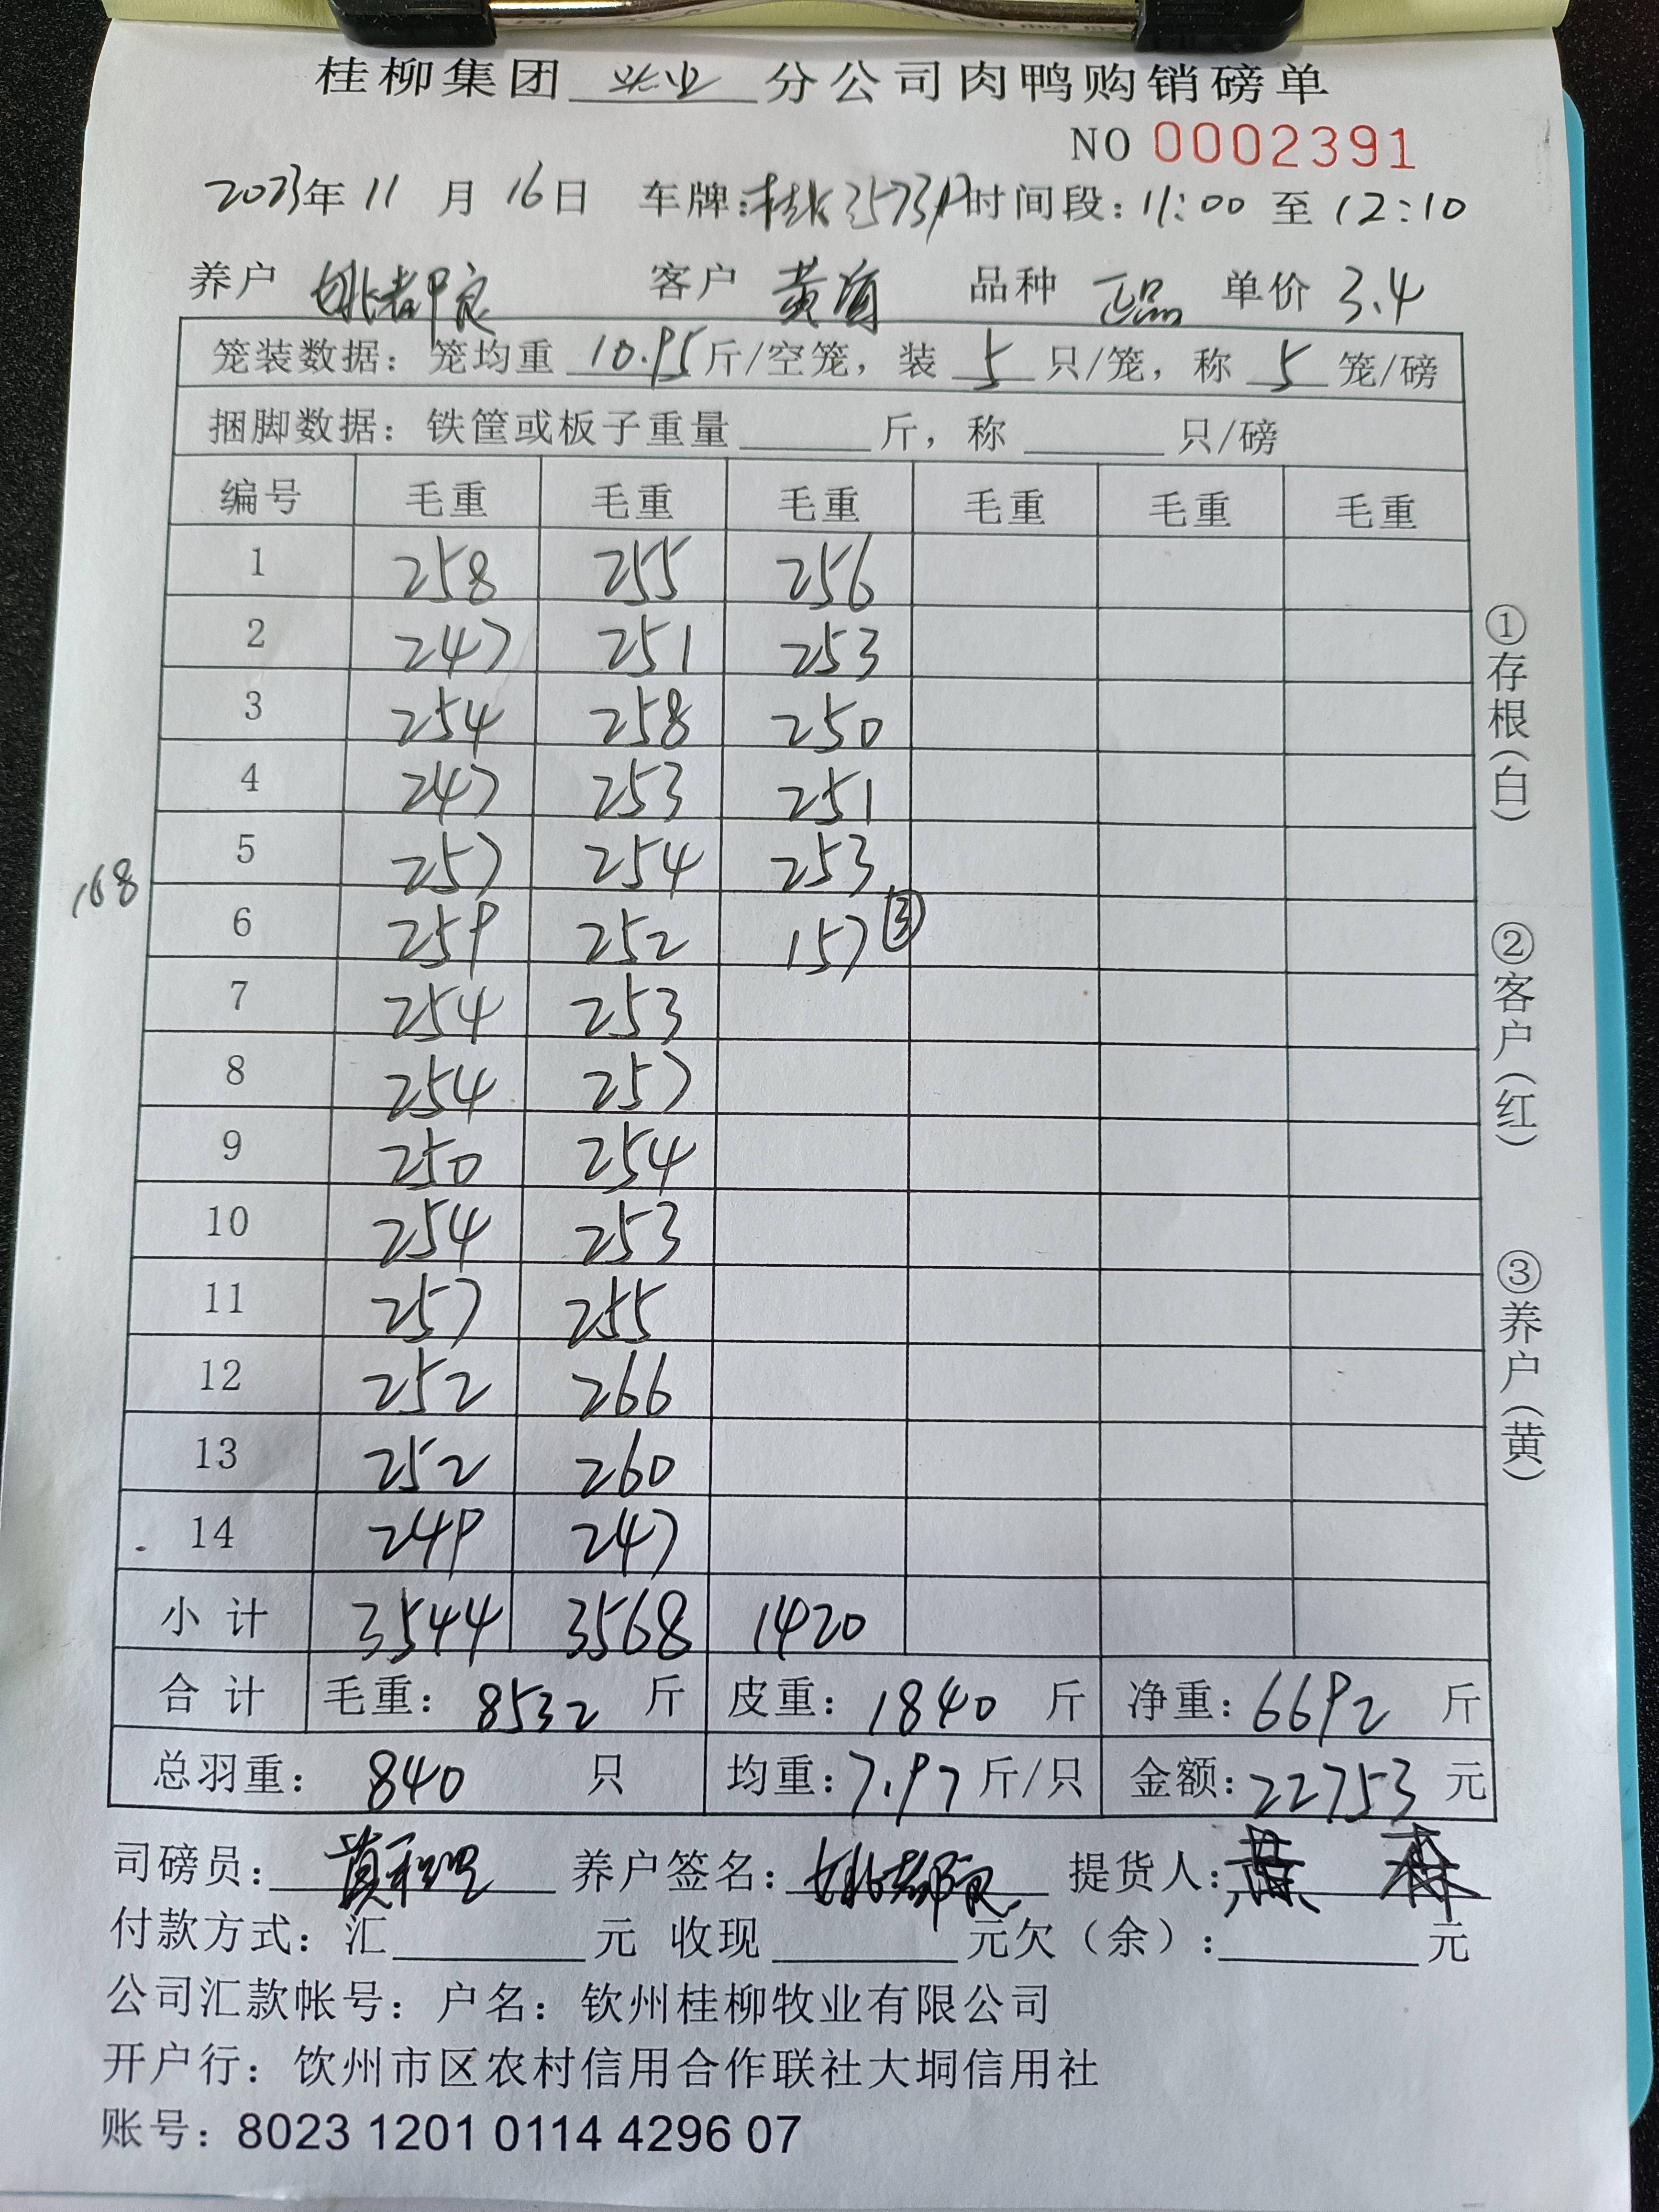 桂柳集团 牧业 分公司肉鸭购销磅单
NO 0002391
2023年 11 月 16日 车牌: 时间段: 11:00 至 12:10
养户 客户 品种 正品 单价 3.4
笼装数据: 笼均重 10.95 斤/空笼, 装 5 只/笼, 称 5 笼/磅
捆脚数据: 铁筐或板子重量 斤, 称 只/磅
编号 毛重 毛重 毛重 毛重 毛重 毛重
1 258 255 256
2 247 251 253
3 254 258 250
4 247 253 251
5 257 254 253
168
6 259 252 157 ③
7 254 253
8 254 257
9 250 254
10 254 253
11 257 255
12 252 266
13 252 260
14 249 247
小计 3544 3568 1420
合计 毛重: 8532 斤 皮重: 1840 斤 净重: 6692 斤
总羽重: 840 只 均重: 7.97 斤/只 金额: 22753 元
司磅员: 养户签名: 提货人:
付款方式: 汇 元 收现 元欠(余): 元
公司汇款帐号: 户名: 钦州桂柳牧业有限公司
开户行: 饮州市区农村信用合作联社大垌信用社
账号: 8023 1201 0114 4296 07
①存根(白)
②客户(红)
③养户(黄)